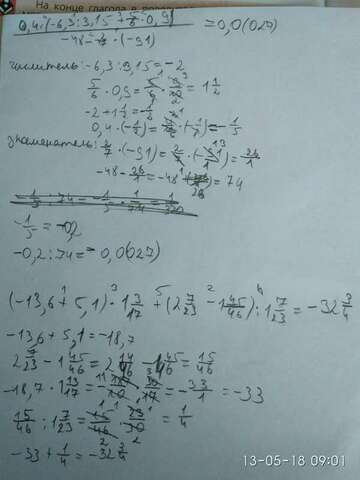 На конце глагола в
0,4·(-6,3:3,15+5/6·0,9) = 0,0(027)
-48-2/7·(-91)
числитель: -6,3:3,15=-2
5/6·0,9=5/6·9/10=1 1/2
-2+1 1/2=-1/2
0,4·(-1/2)=2/5·(-1/2)=-1/5
знаменатель: 2/7·(-91)=2/7·(-91/1)=26/1
-48-26/1=-48+ =74
26
-1/5:74=-1/5·1/74=1/370
-1/5=-0,2
-0,2:74=-0,0(027)
(-13,6+5,1)·1 13/17+(2 7/23-1 45/46):1 7/23=-32 3/4
-13,6+5,1=-18,7
2 7/23-1 45/46=2 14/46-1 45/46=15/46
-18,7·1 13/17= =-33/1=-33
15/46:1 7/23=15/46·23/30=1/4
-33+1/4=-32 3/4
13-05-18 09:01